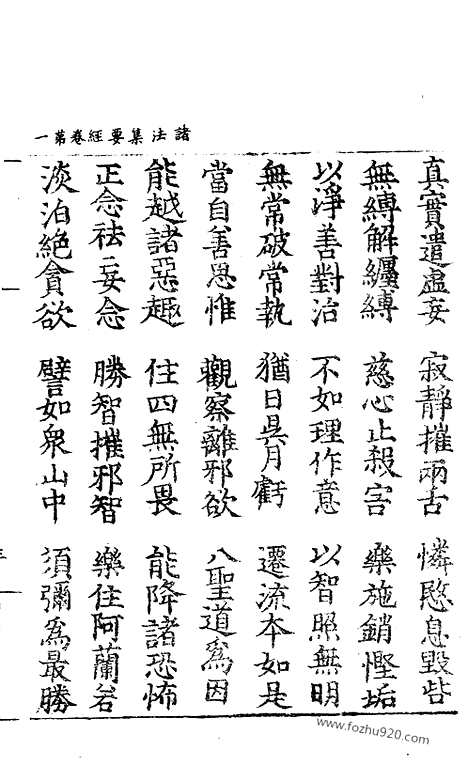 諸法集要經卷第一
真實遣虛妄　寂靜摧兩舌　憐愍息毀呰
無縛解纏縛　慈心止殺害　樂施銷慳垢
以淨善對治　不如理作意　以智照無明
無常破常執　猶日昃月虧　遷流本如是
當自善思惟　觀察離邪欲　八聖道為因
能越諸惡趣　住四無所畏　能降諸恐怖
正念祛妄念　勝智摧邪智　樂住阿蘭若
淡泊絕貪欲　譬如眾山中　須彌為最勝
www.fozhu920.com